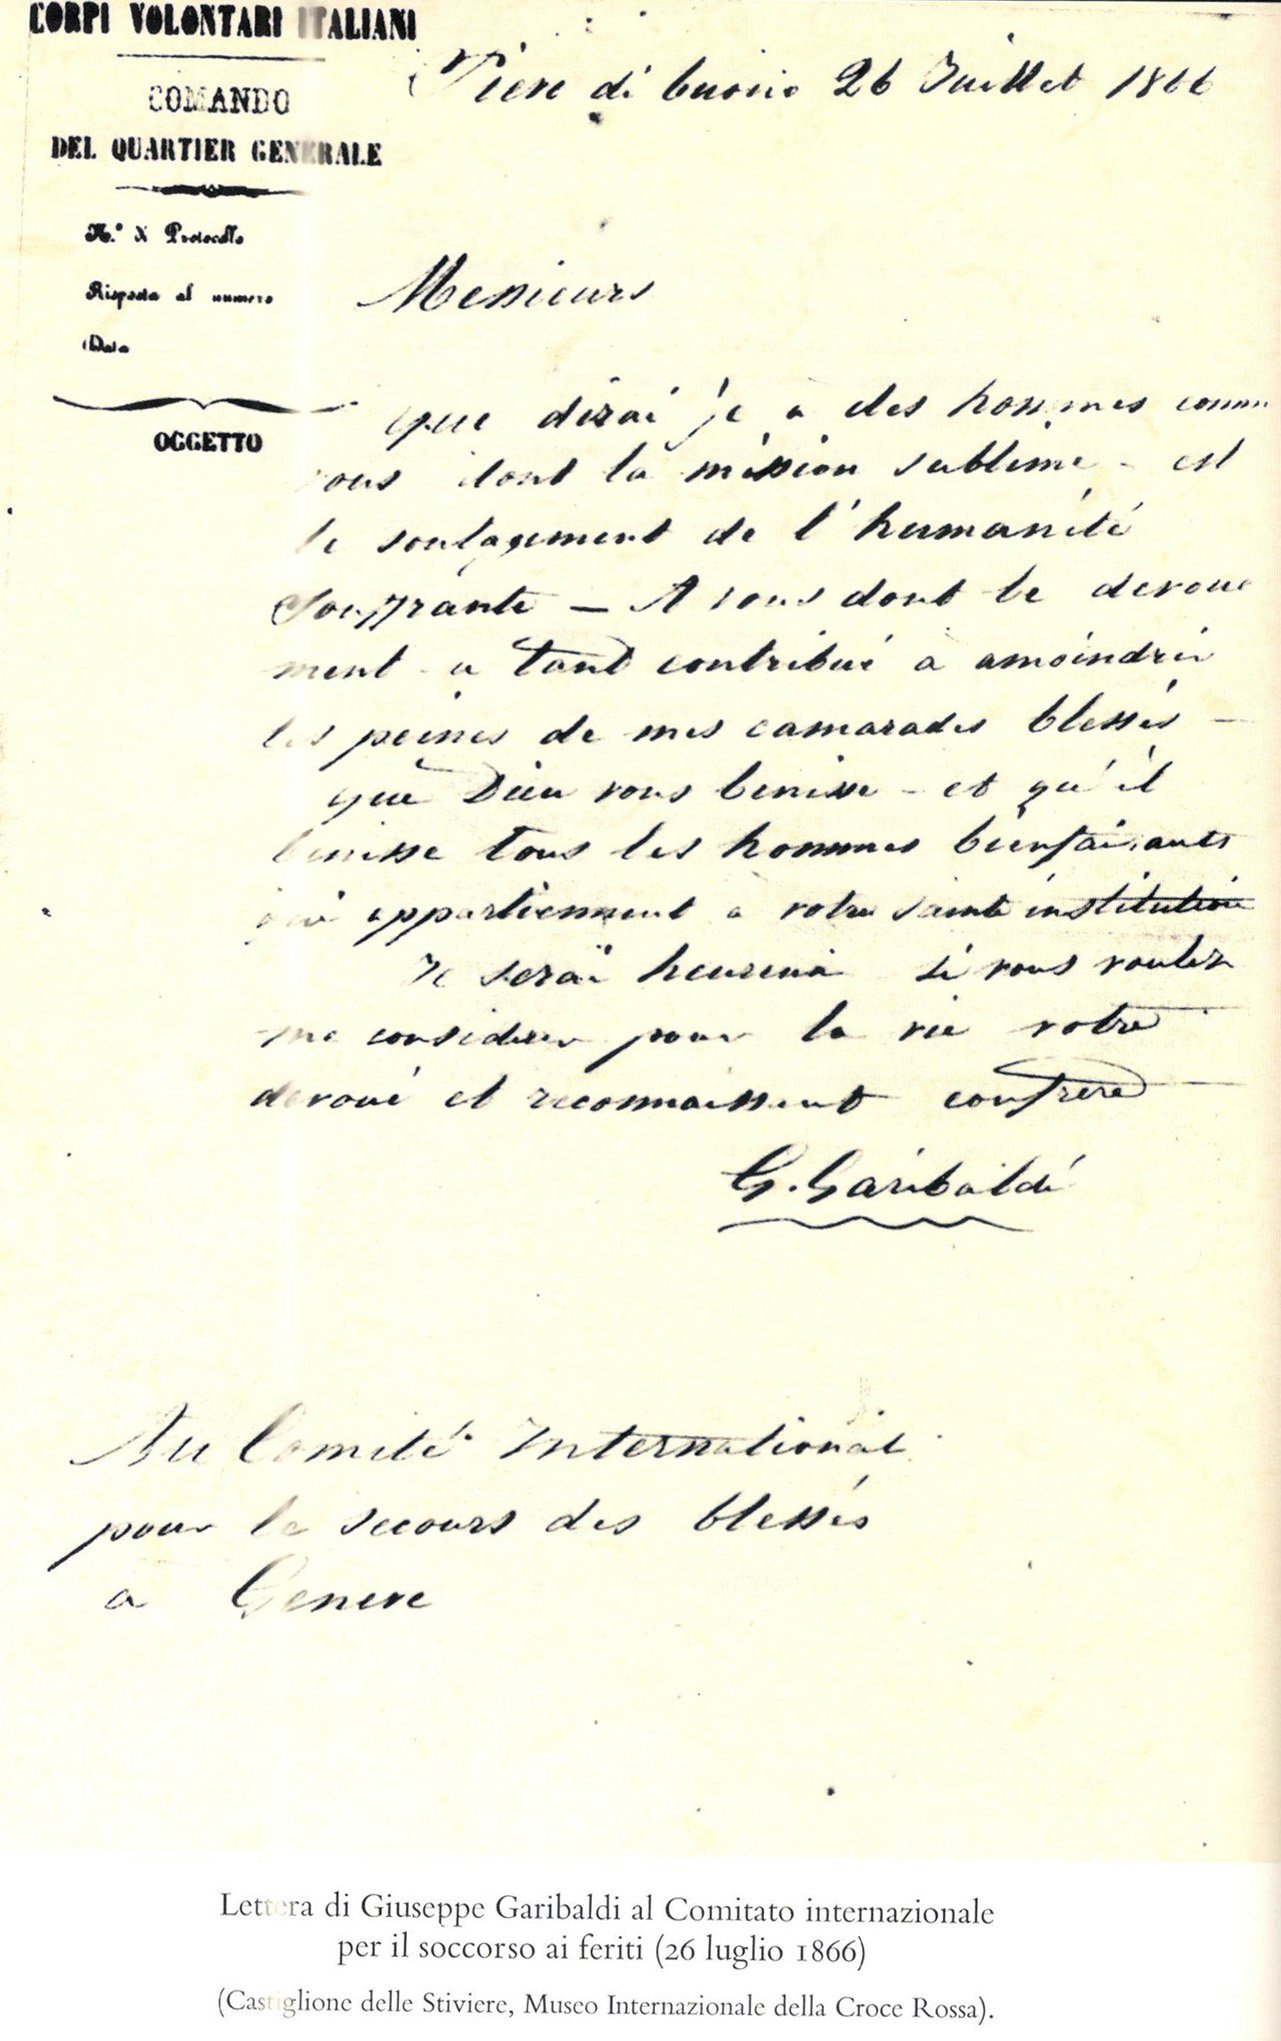 CORPI VOLONTARI ITALIANI
COMANDO
DEL QUARTIER GENERALE
N.º di Protocollo
Risposta al numero
Data
OGGETTO
Pieve di buono 26 Juillet 1866
Messieurs
Que dirai je a des hommes comme
vous dont la mission sublime - est
le soulagement de l'humanité
Souffrante — A vous dont le devoue
ment a tant contribué a amoindrir
les peines de mes camarades blessés —
que Dieu vous benisse - et qu'il
benisse tous les hommes bienfaisants
qui appartiennent a votre sainte institution
Je serai heureux si vous voulez
me considerer pour la vie votre
devoué et reconnaissant confrere
G. Garibaldi
Au Comité International
pour le secours des blessés
a Geneve
Lettera di Giuseppe Garibaldi al Comitato internazionale
per il soccorso ai feriti (26 luglio 1866)
(Castiglione delle Stiviere, Museo Internazionale della Croce Rossa).